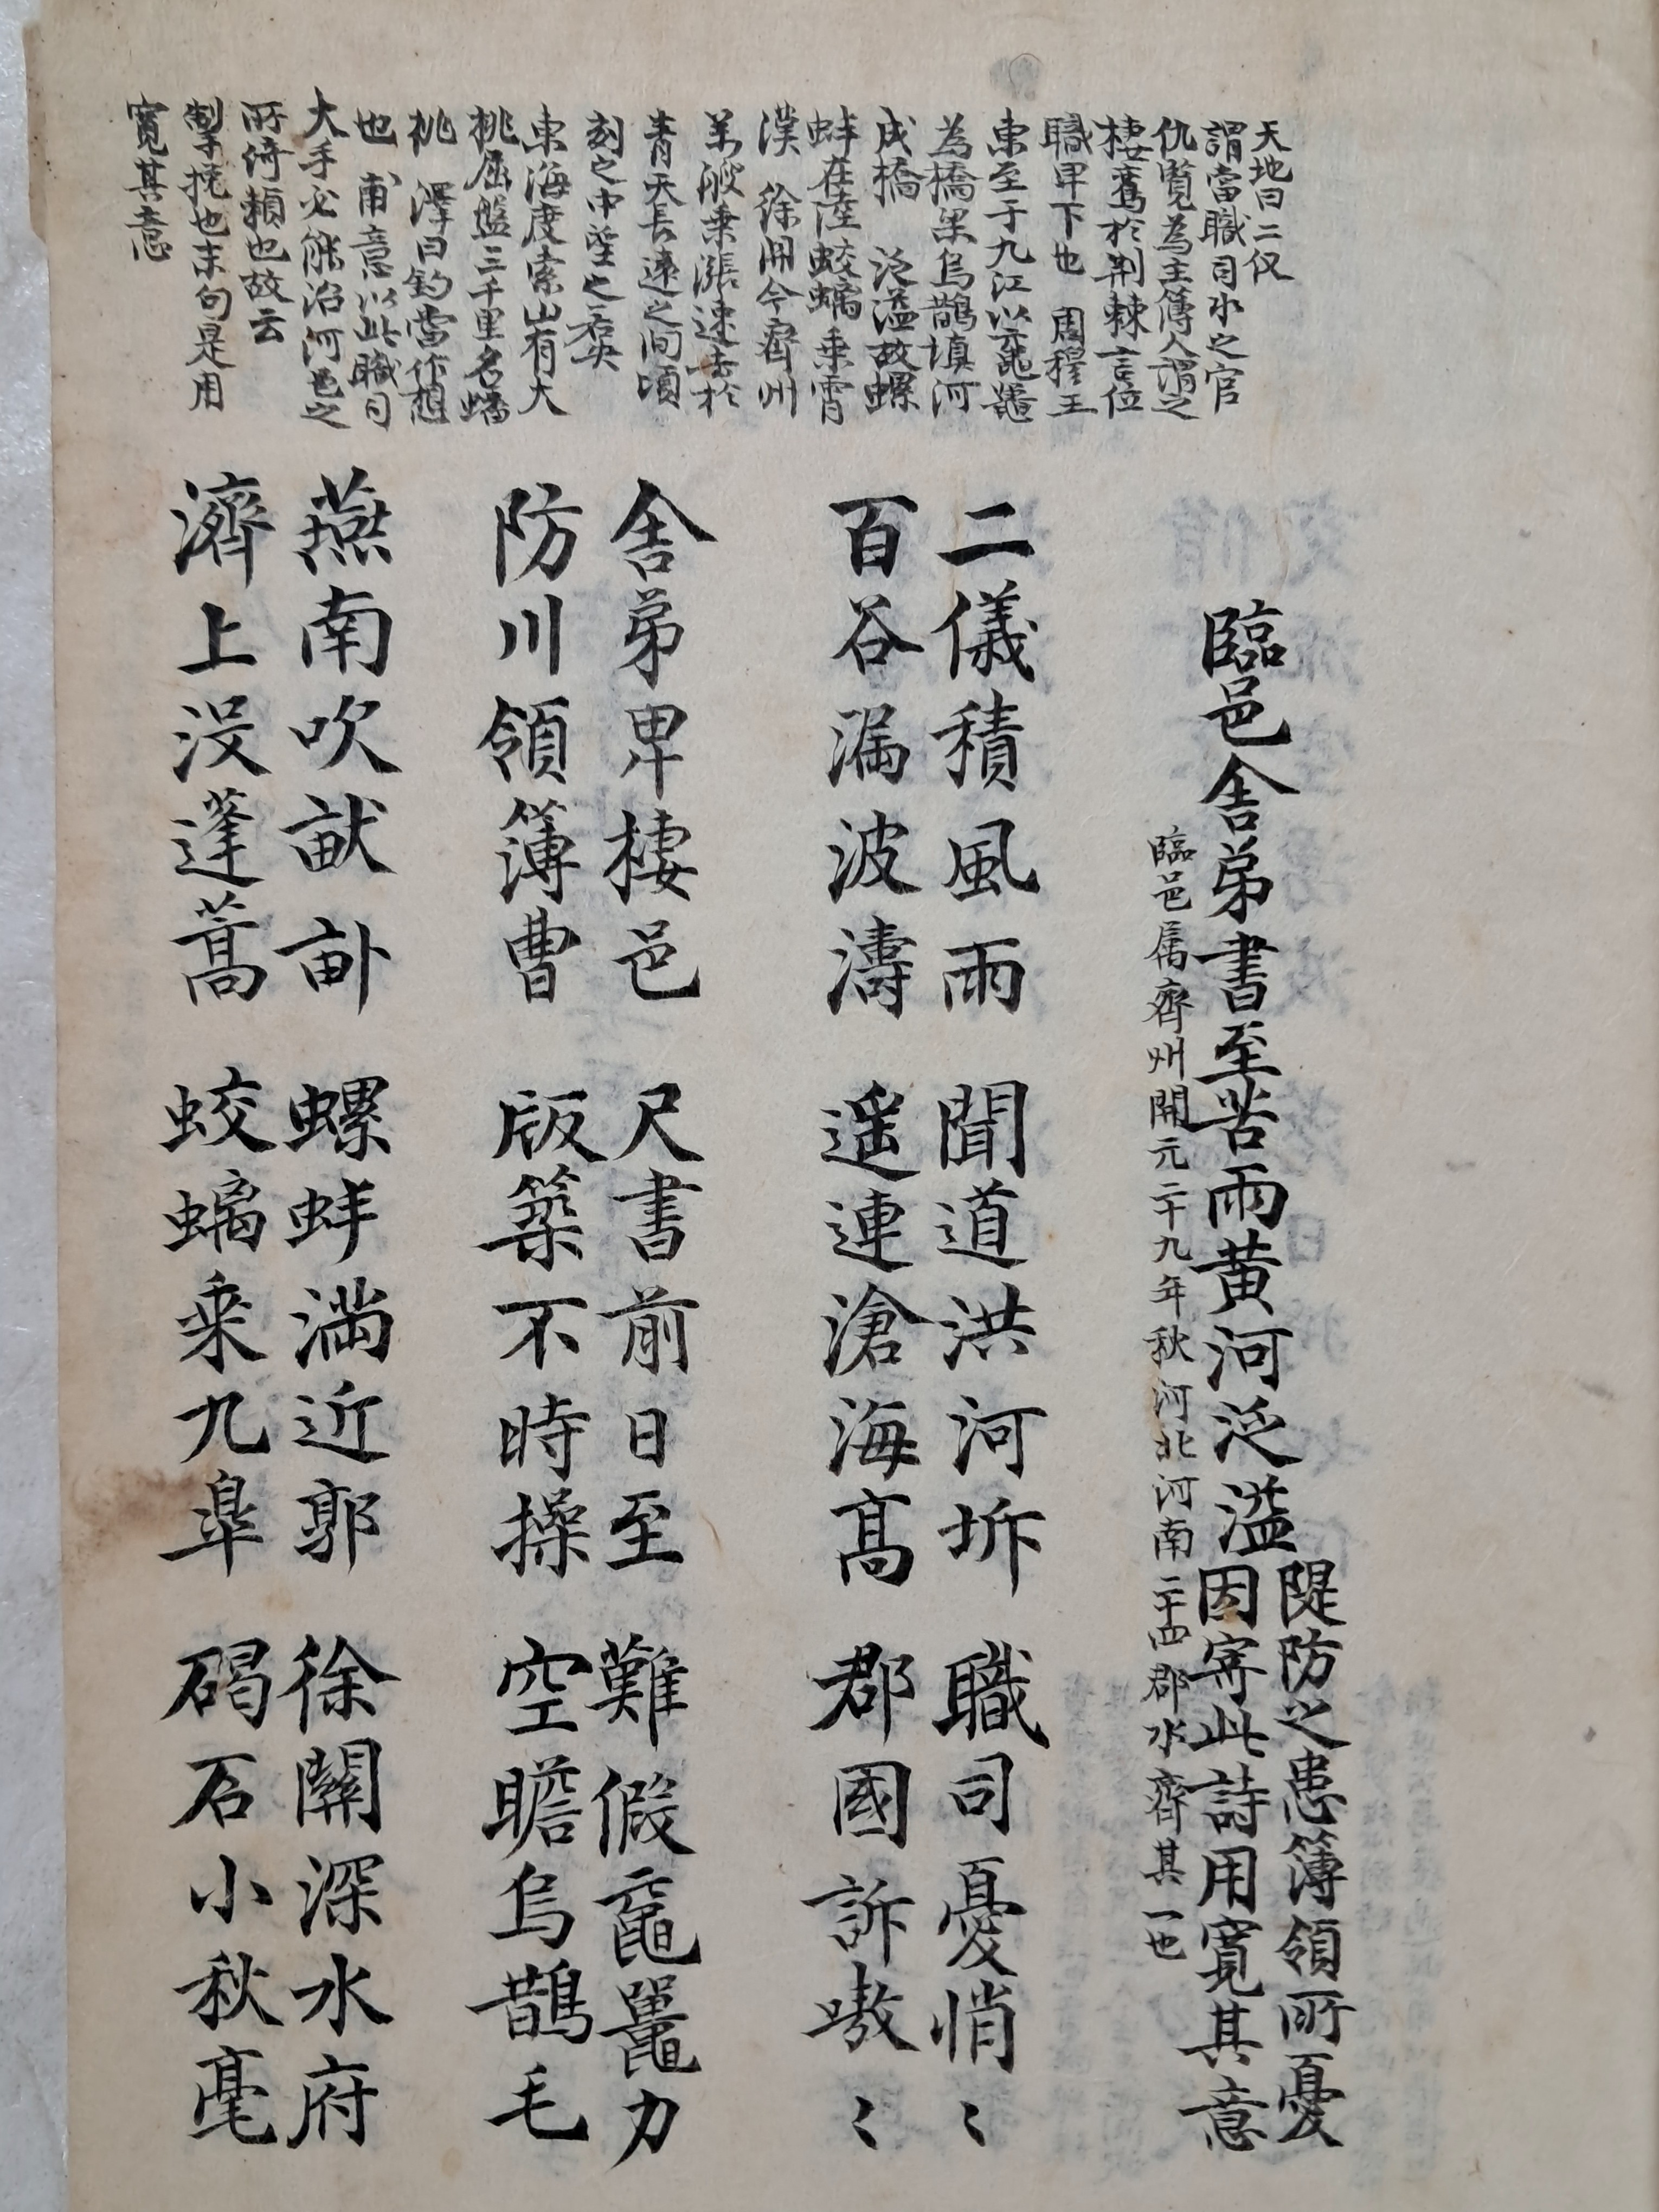 臨邑舍弟書至苦雨黃河泛溢
隄防之患簿領所憂
因寄此詩用寬其意
臨邑属齊州開元二十九年秋河北河南二十四郡水齊其一也
二儀積風雨 聞道洪河坼 職司憂悄〻
百谷漏波濤 遥連滄海髙 郡國訴嗷〻
舍弟卑棲邑 尺書前日至 難假黿鼉力
防川領簿曹 版築不時操 空瞻烏鵲毛
燕南吹畎畝 螺蚌満近郭 徐關深水府
濟上没蓬蒿 蛟螭乘九皐 碣石小秋毫
天地曰二仪
謂當職司水之官
仇覧為主簿人謂之
棲鸞於荆棘言位
職卑下也 周穆王
東至于九江以黿鼉
為橋梁烏鵲填河
成橋 泛溢故螺
蚌在陸蛟螭乗霄
漢 徐開今齊州
乗漲速去於
青天長遠之间頃
刻之中望之
東海度索山有大
桃屈盤三千里名蟠
桃 澤曰釣當作想
也 甫意以此職司
大手必能治河邑之
所倚頼也故云
掣挽也末句是用
寛其意